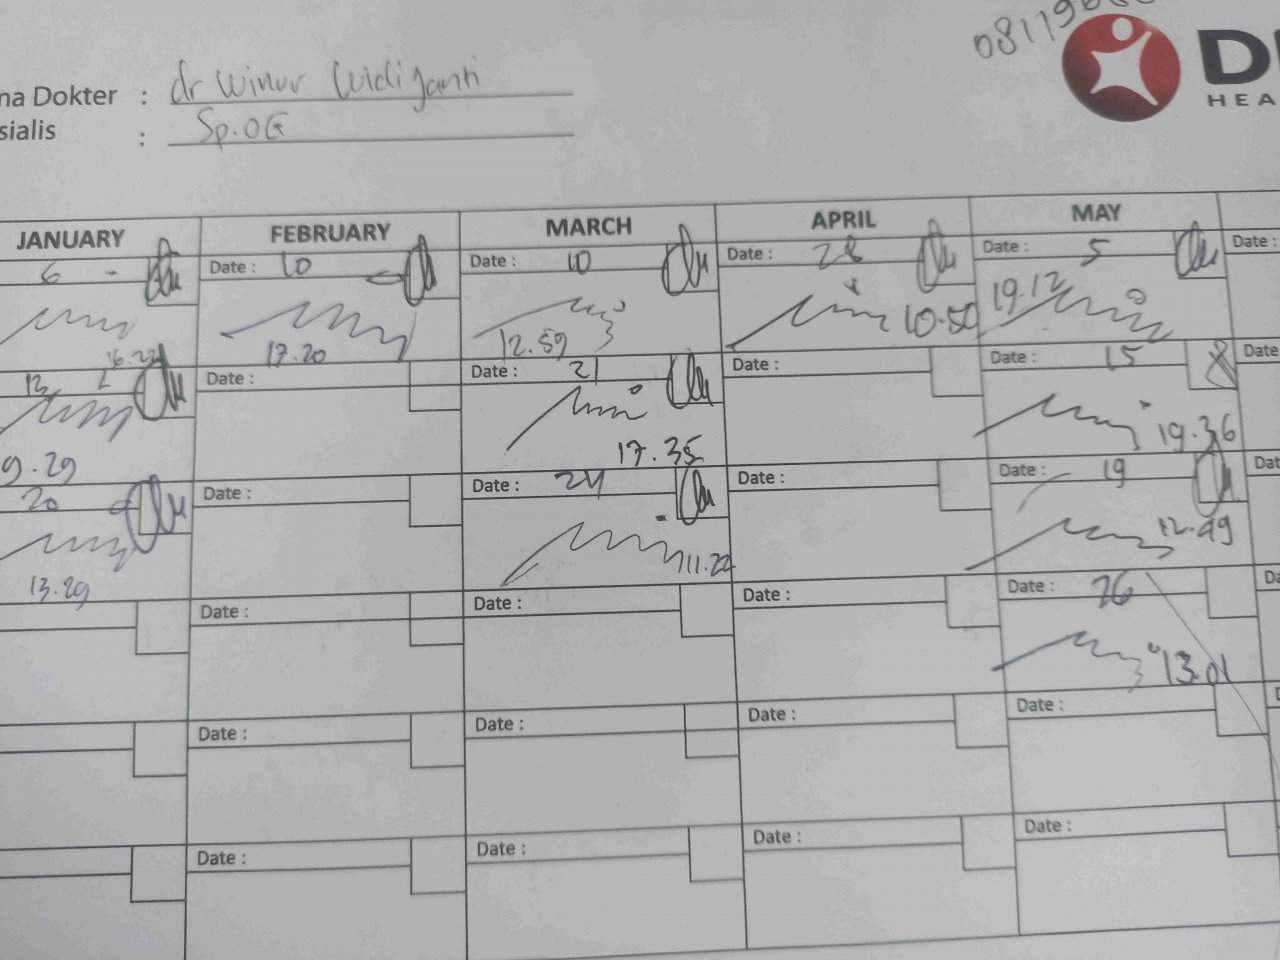 08119
na Dokter : dr Winur Widiyanti
sialis : Sp.OG
HEA
JANUARY FEBRUARY MARCH APRIL MAY
6 Date : 10 Date : 10 Date : 28 Date : 5 Date :
17.20 12.59 10.50 19.12
13 Date : Date : 21 Date : Date : 15 Date
9.29 17.35 19.36
20 Date : Date : 24 Date : Date : 19 Dat
13.29 11.22 12.49
Date : Date : Date : Date : 26 Da
13.01
Date : Date : Date : Date :
Date : Date : Date : Date :